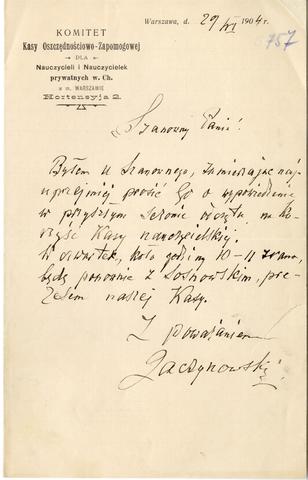 KOMITET
Kasy Oszczędnościowo-Zapomogowej
DLA
Nauczycieli i Nauczycielek
prywatnych w. Ch.
z m. WARSZAWIE
Hortensyja 2.
Warszawa, d. 29/XI 1904 r.
6757
Szanowny Panie!
Byłem u Szanownego, zamierzając naj
uprzejmiej prosić Go o wypowiedzenie
w przyszłym sezonie odczytu na ko-
rzyść Kasy nauczycielskiej.
W czwartek, koło godziny 10-11 zrana,
będę ponownie z Sosnowskim, pre-
zesem naszej Kasy.
Z poważaniem
Zaczynowski